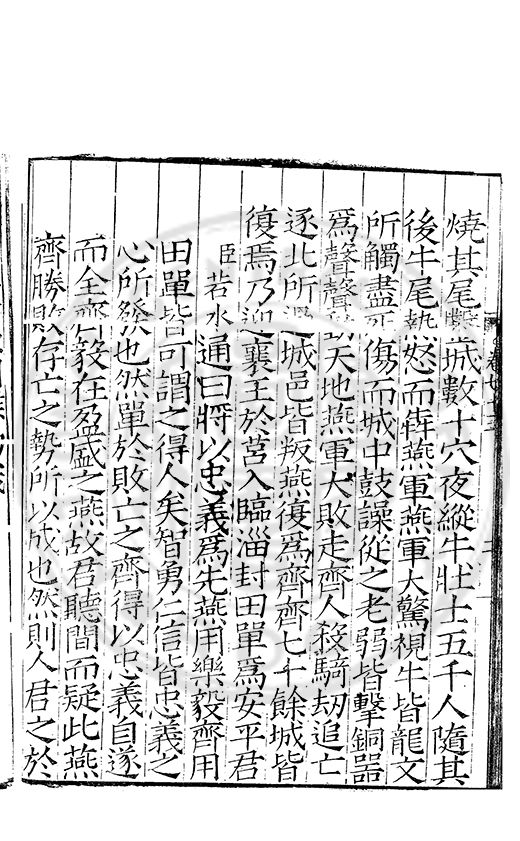 燒其尾鑿城數十穴夜縱牛壯士五千人隨其
後牛尾熱怒而犇燕軍燕軍大驚視牛皆龍文
所觸盡死傷而城中鼓譟從之老弱皆擊銅器
爲聲聲動天地燕軍大敗走齊人殺騎劫追亡
逐北所過城邑皆叛燕復爲齊齊七十餘城皆
復焉乃迎襄王於莒入臨淄封田單爲安平君
臣若水通曰將以忠義爲先燕用樂毅齊用
田單皆可謂之得人矣智勇仁信皆忠義之
心所發也然單於敗亡之齊得以忠義自遂
而全齊毅在盈盛之燕故君聽間而疑此燕
齊勝敗存亡之勢所以成也然則人君之於